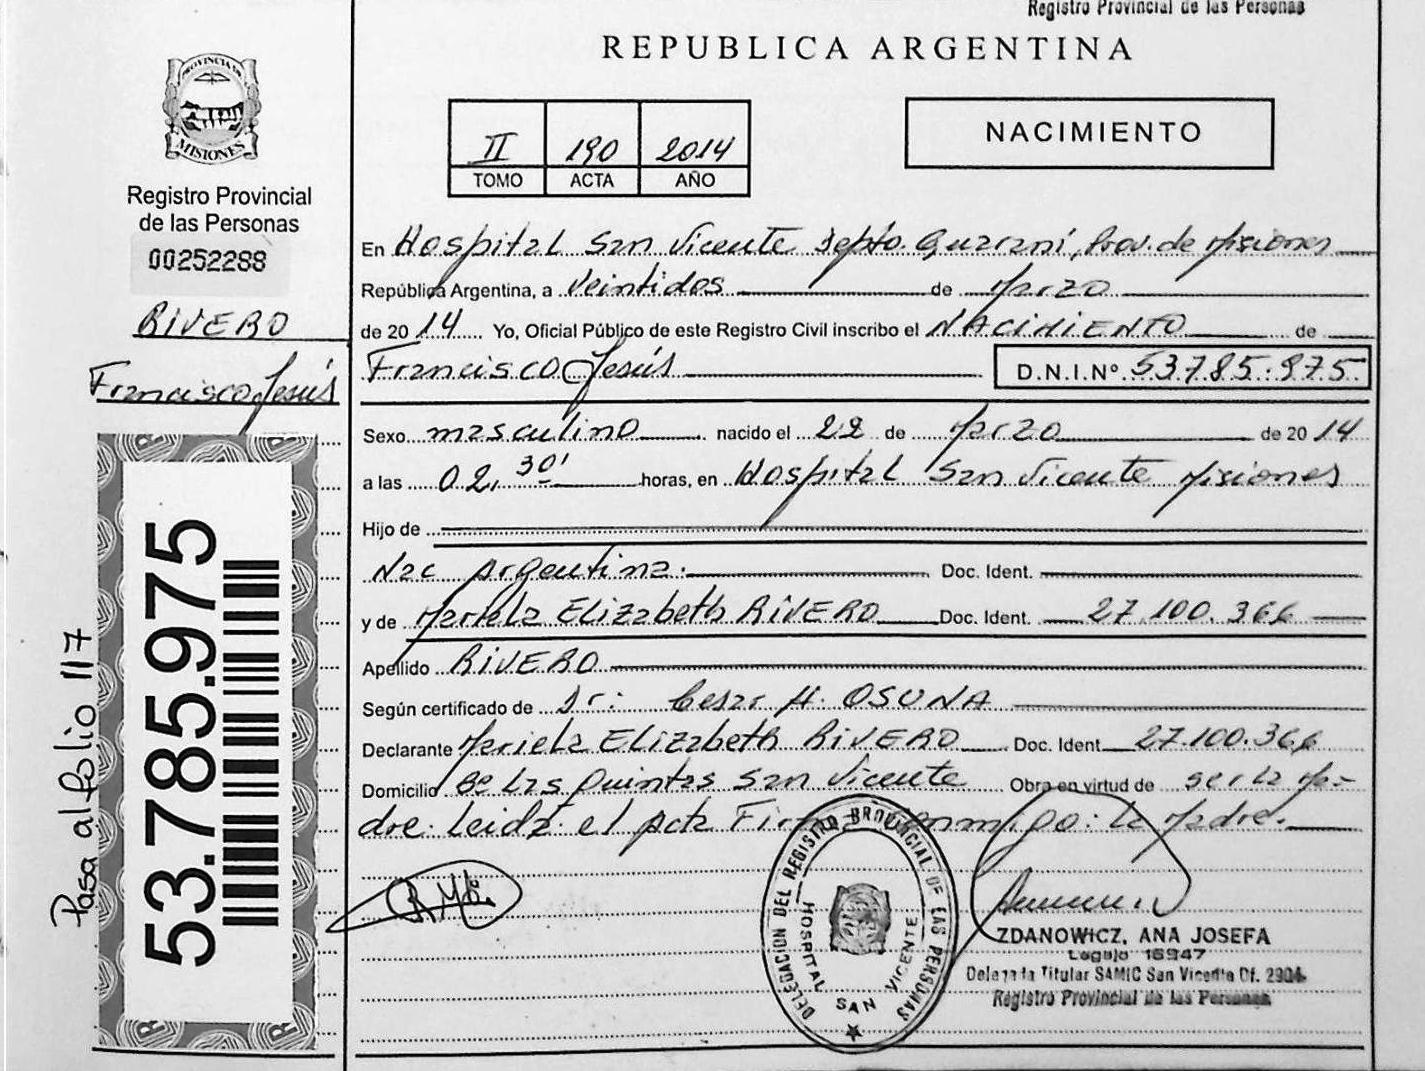 Registro Provincial de las Personas
REPUBLICA ARGENTINA
PROVINCIA DE
MISIONES
Registro Provincial
de las Personas
00252288
RIVERO
Francisco Jesús
53.785.975
Pasa al folio 117
II 190 2014
TOMO ACTA AÑO
NACIMIENTO
En Hospital San Vicente Depto. Guaraní, Prov. de Misiones
República Argentina, a veintidos de Marzo
de 20 14 Yo, Oficial Público de este Registro Civil inscribo el NACIMIENTO de
Francisco Jesús D.N.I.Nº 53.785.975
Sexo masculino nacido el 22 de Marzo de 20 14
a las 02,30' horas, en Hospital San Vicente Misiones
Hijo de
Nac Argentina. Doc. Ident.
y de Mariela Elizabeth RIVERO Doc. Ident. 27.100.366
Apellido RIVERO
Según certificado de Dr: Cesar H. OSUNA
Declarante Mariela Elizabeth RIVERO Doc. Ident. 27.100.366
Domicilio Bº Las Quintas San Vicente Obra en virtud de ser la Ma-
dre. Leida el acta Firma conmigo: la Madre.
R.M.
DELEGACION DEL REGISTRO PROVINCIAL DE LAS PERSONAS
HOSPITAL SAN VICENTE
ZDANOWICZ, ANA JOSEFA
Legajo 16947
Delegada Titular SAMIC San Vicente Df. 2904
Registro Provincial de las Personas